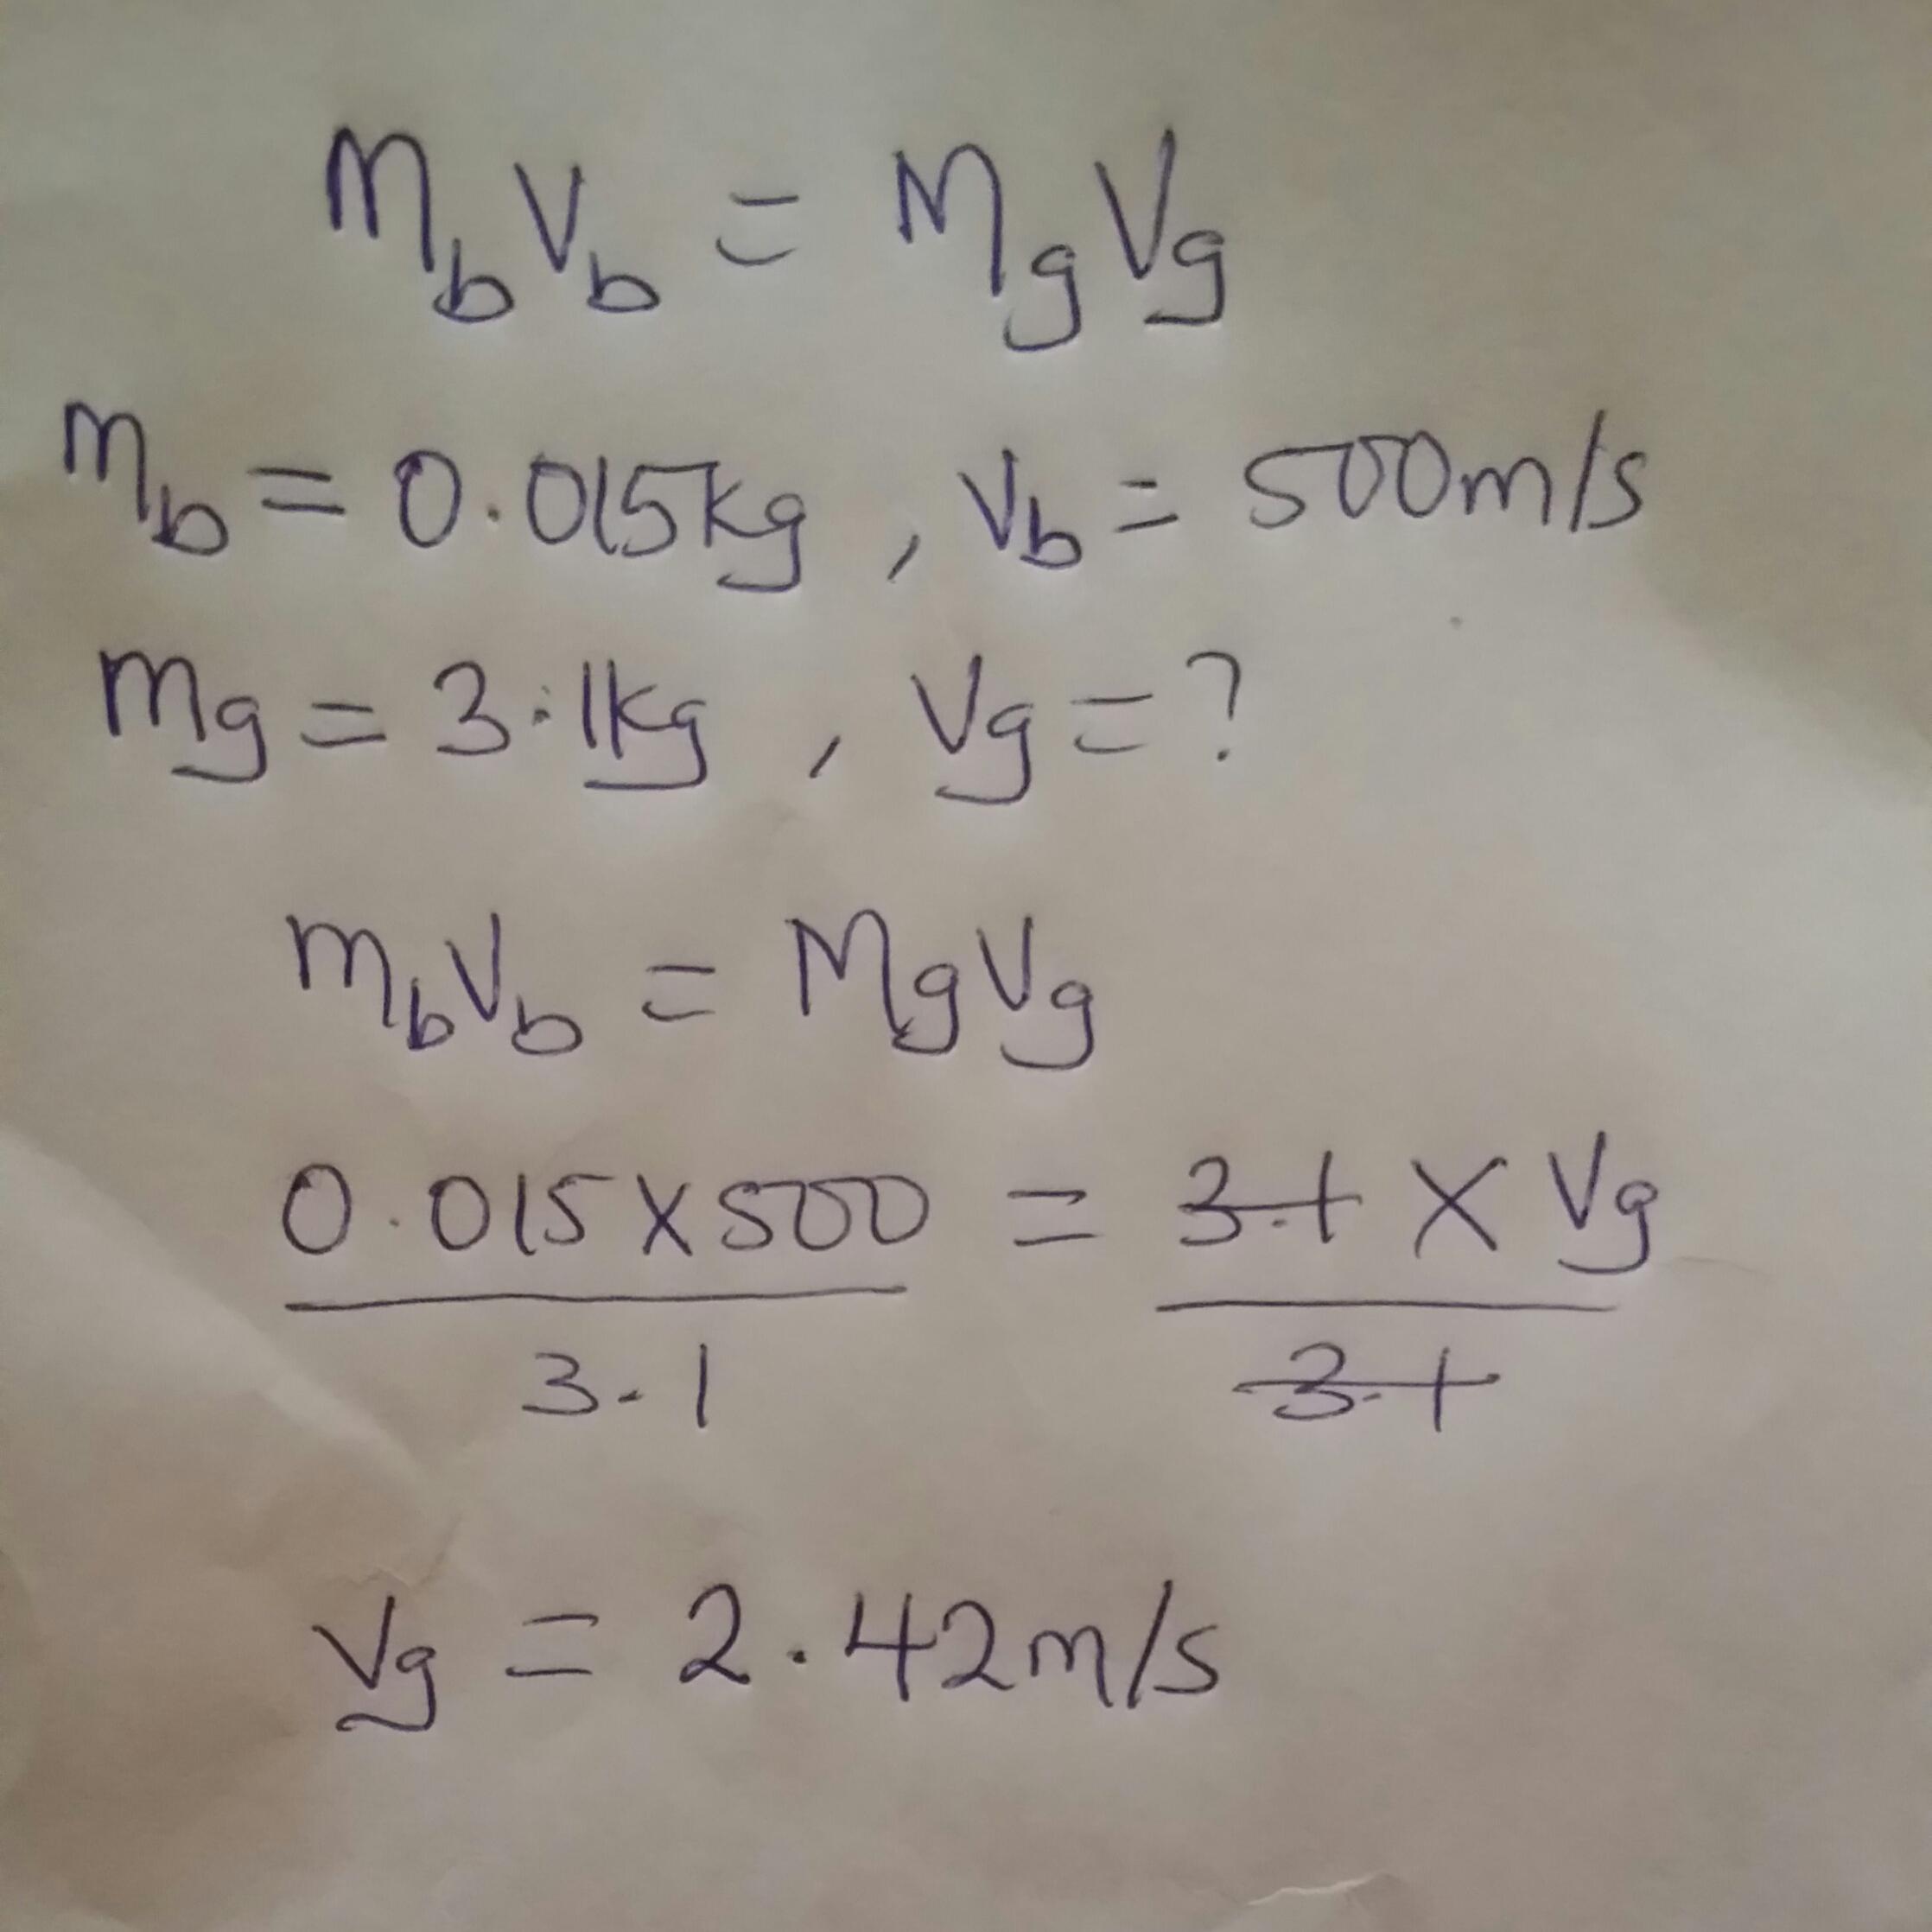 MbVb = MgVg
Mb = 0.015kg , Vb = 500m/s
Mg = 3.1kg , Vg = ?
MbVb = MgVg
0.015 X 500 = 3.1 X Vg
3.1 3.1
Vg = 2.42m/s